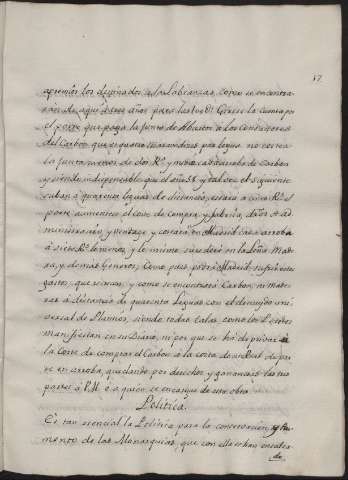 17
apremiar los destinados a las cobranzas, como se encontra-
de aqui a tres años para las
el porte que paga la Junta de Abastos a los Conductores
del Carbon que quatro maravedises por legua no es mea
la Junta menos de dos R.s y medio cada arroba de Carbon
y siendo indispensable que el año y tal vez el siguiente
suban á quarenta leguas de distancia, estará a cinco R.s el
porte aumentese el coste de compra y fabrica, años de ad-
ministracion y ventage y costará en Madrid cada arroba
á siete R.s lo menos, y lo mismo sucederá en la Leña, Made-
ra, y demas Generos. Como pues podrá Madrid sufrir estos
gastos, que se crian, y como se encontrará Carbon, ni Made-
ras á distancia de quarenta leguas con el desmonte uni-
versal de Plantios, siendo todas talas como los Peritos
manifiestan en su Diario, ni por que se ha de privar á
la Corte de comprar el Carbon a la costa de un Real de por-
te en arroba, quedando por derechos y ganancias las tres
partes á V.M. ó a quien se encargue de esta obra
Politica.
Es tan esencial la Politica para la conservacion, y fo-
mento de las Monarquias, que con ella se han ensalza-
do